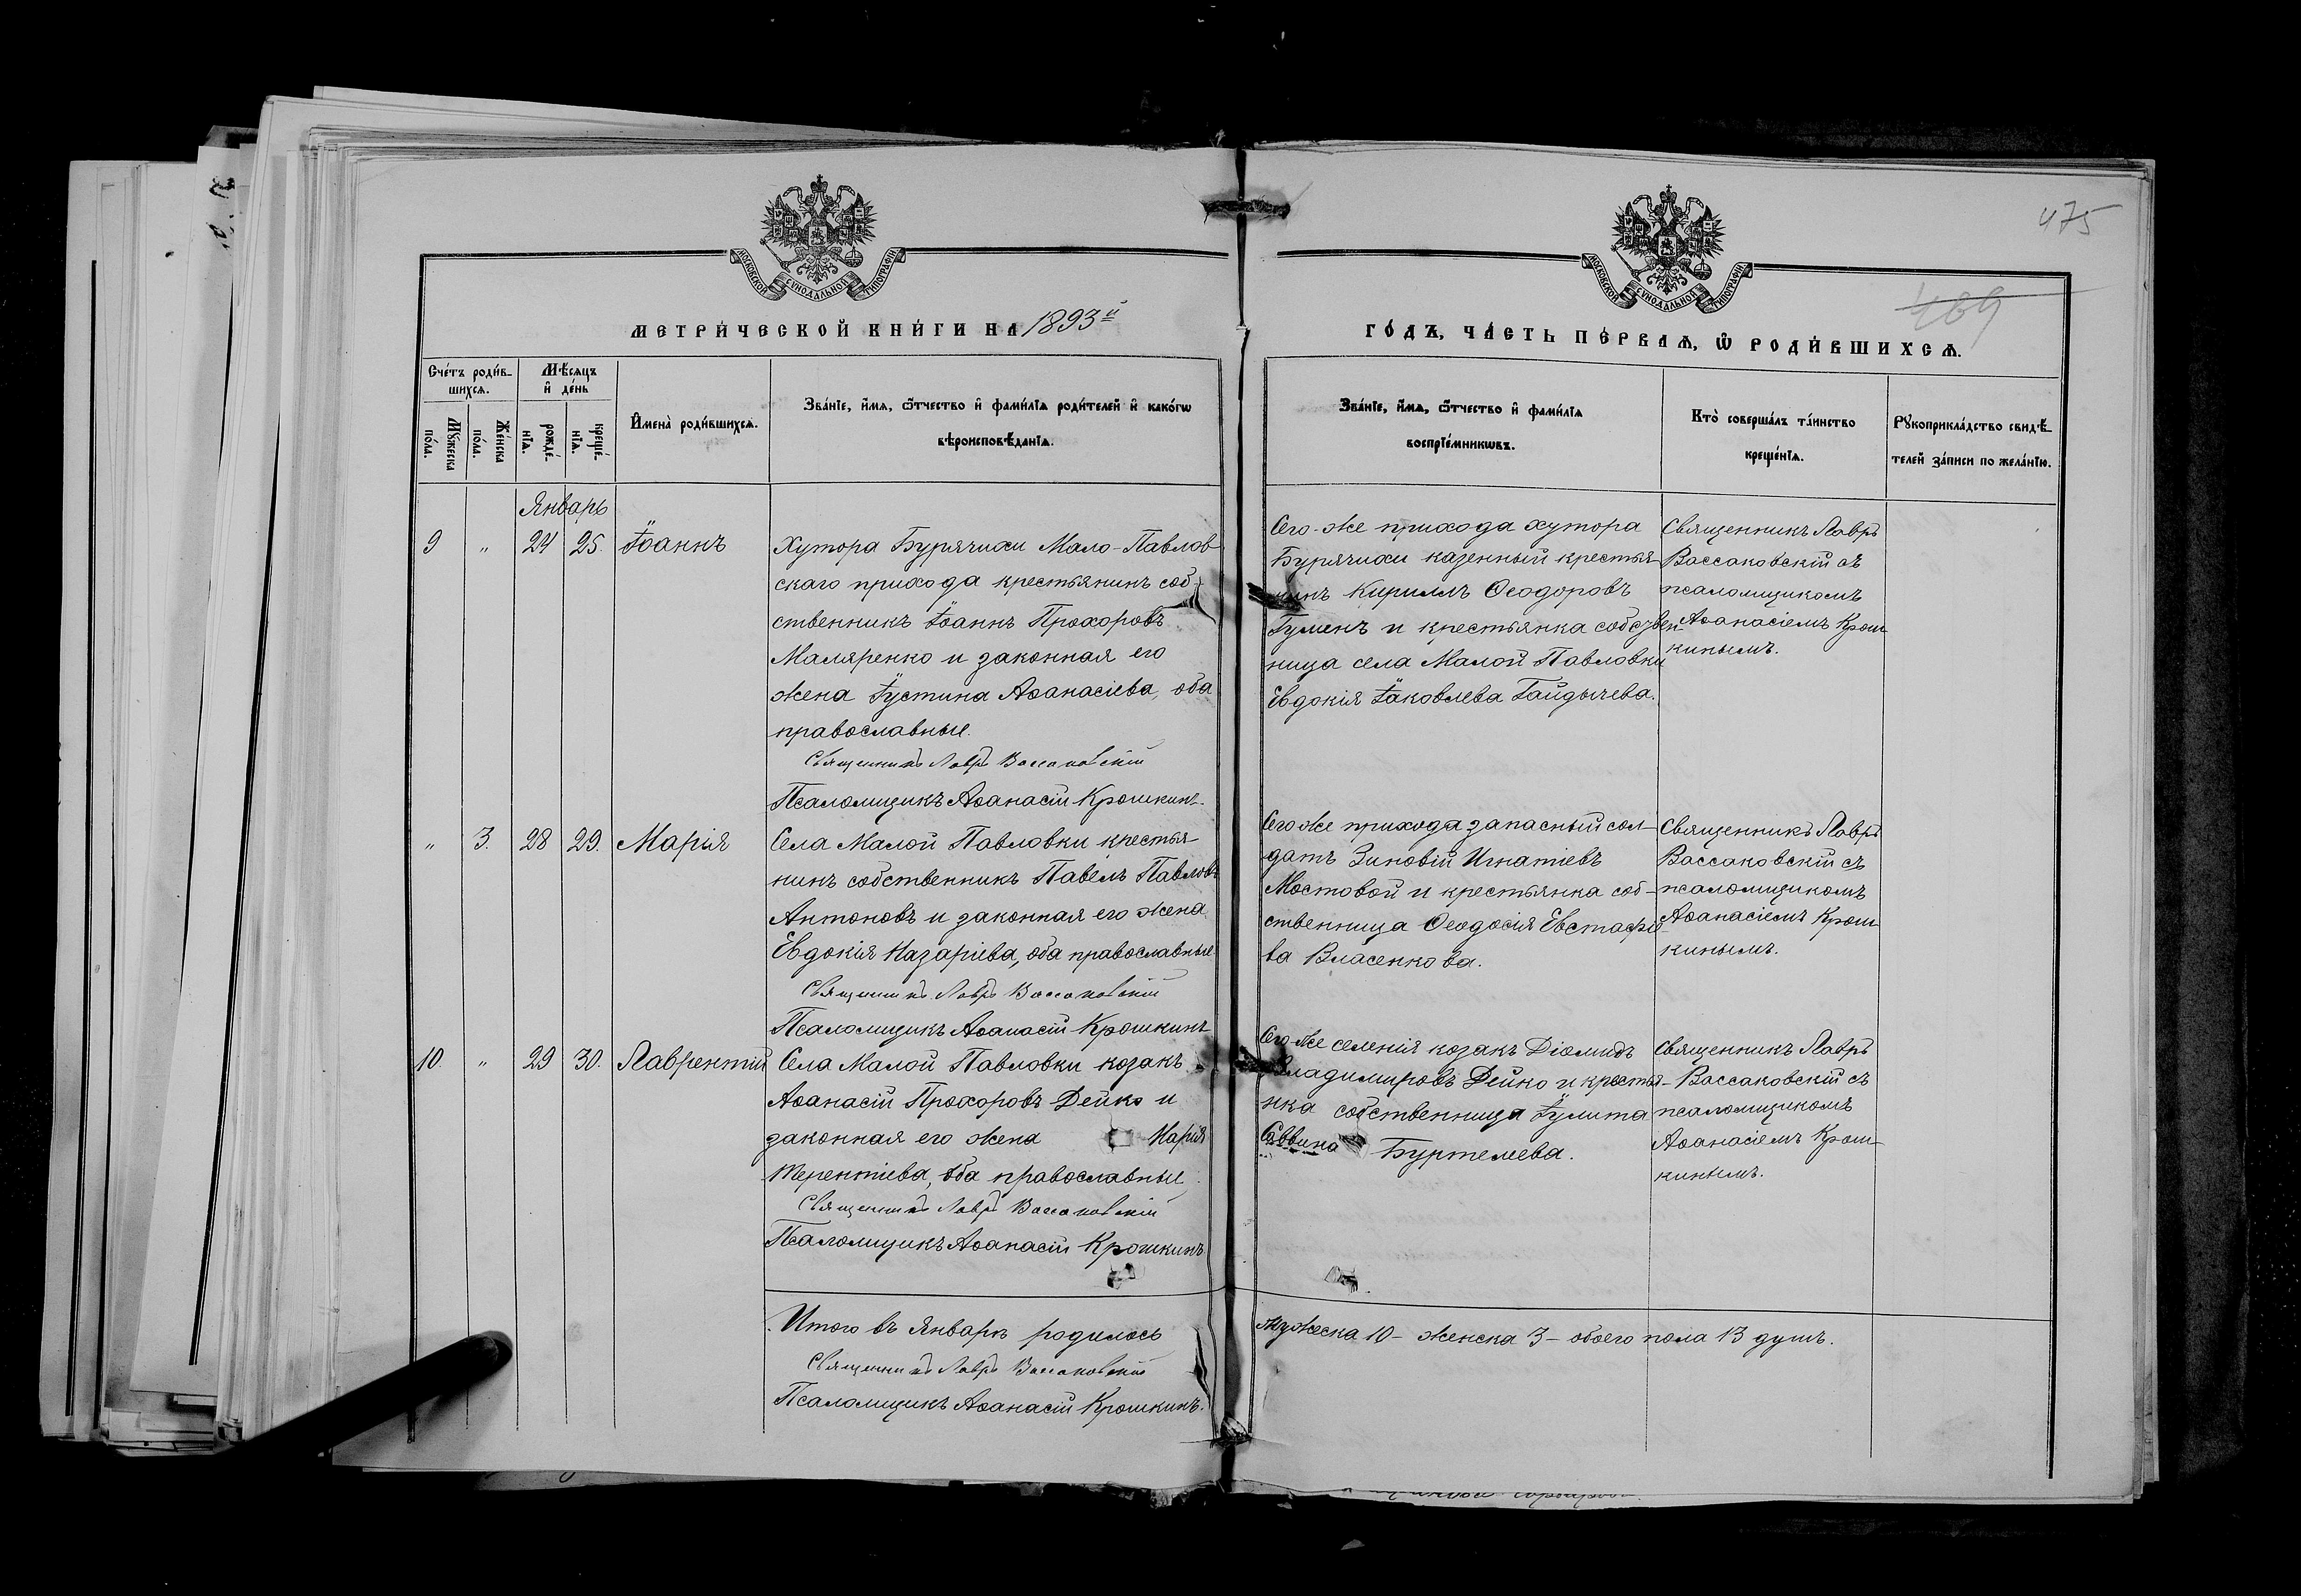 475
469
МОСКОВСКОЙ СУНОДАЛЬНОЙ ТИПОГРАФІИ
МОСКОВСКОЙ СУНОДАЛЬНОЙ ТИПОГРАФІИ
МЕТРИ́ЧЕСКОЙ КНИ́ГИ НА 1893й
ГО́ДЪ, ЧА́СТЬ ПЕ́РВАѦ, Ѡ РОДИ́ВШИХСѦ.
Сче́тъ роди́в-
шихсѧ.
Мꙋ́жеска
по́ла.
Же́нска
по́ла.
Мѣ́сѧцъ
и҆ де́нь
рожде́-
нїѧ.
креще́-
нїѧ.
И҆мена̀ роди́вшихсѧ.
Зва́нїе, и҆́мѧ, ѻ҆́тчество и҆ фами́лїѧ роди́телей и҆ како́гѡ
вѣроисповѣ́данїѧ.
Зва́нїе, и҆́мѧ, ѻ҆́тчество и҆ фами́лїѧ
воспрїе́мникѡвъ.
Кто̀ соверша́лъ та́инство
креще́нїѧ.
Рꙋкоприкла́дство свидѣ́-
телей за́писи по жела́нїю.
Январь
9 " 24 25. Іоаннъ
Хутора Бурячихи Мало-Павлов-
скаго прихода крестьянинъ соб-
ственникъ Іоаннъ Прохоровъ
Маляренко и законная его
жена Іустина Аѳанасіева, оба
православные.
Священникъ Лавръ Вассаковскій
Псаломщикъ Аѳанасій Крошкинъ.
Сего-же прихода хутора
Бурячихи казенный крестья-
нинъ Кириллъ Ѳеодоровъ
Гуменъ и крестьянка собствен-
ница села Малой Павловки
Евдокія Іаковлева Гайдычева.
Священникъ Лавръ
Вассаковскій съ
псаломщикомъ
Аѳанасіемъ Крош-
кинымъ.
" 3. 28 29. Марія
Села Малой Павловки крестья-
нинъ собственникъ Павелъ Павловъ
Антоновъ и законная его жена
Евдокія Назаріева, оба православные
Священникъ Лавръ Вассаковскій
Псаломщикъ Аѳанасій Крошкинъ
Сего же прихода запасный сол-
датъ Зиновій Игнатіевъ
Мостовой и крестьянка соб-
ственница Ѳеодосія Евстафіе-
ва Власенкова.
Священникъ Лавръ
Вассаковскій съ
псаломщикомъ
Аѳанасіемъ Крош-
кинымъ.
10. " 29 30. Лаврентій
Села Малой Павловки козакъ
Аѳанасій Прохоровъ Дейко и
законная его жена Марія
Терентіева, оба православные
Священникъ Лавръ Вассаковскій
Псаломщикъ Аѳанасій Крошкинъ
Сего же селенія козакъ Діомидъ
Владимировъ Дейко и крестья-
нка собственница Іулита
Саввина Буртелева.
Священникъ Лавръ
Вассаковскій съ
псаломщикомъ
Аѳанасіемъ Крош-
кинымъ.
Итого въ Январѣ родилось
мужеска 10- женска 3- обоего пола 13 душъ.
Священникъ Лавръ Вассаковскій
Псаломщикъ Аѳанасій Крошкинъ.